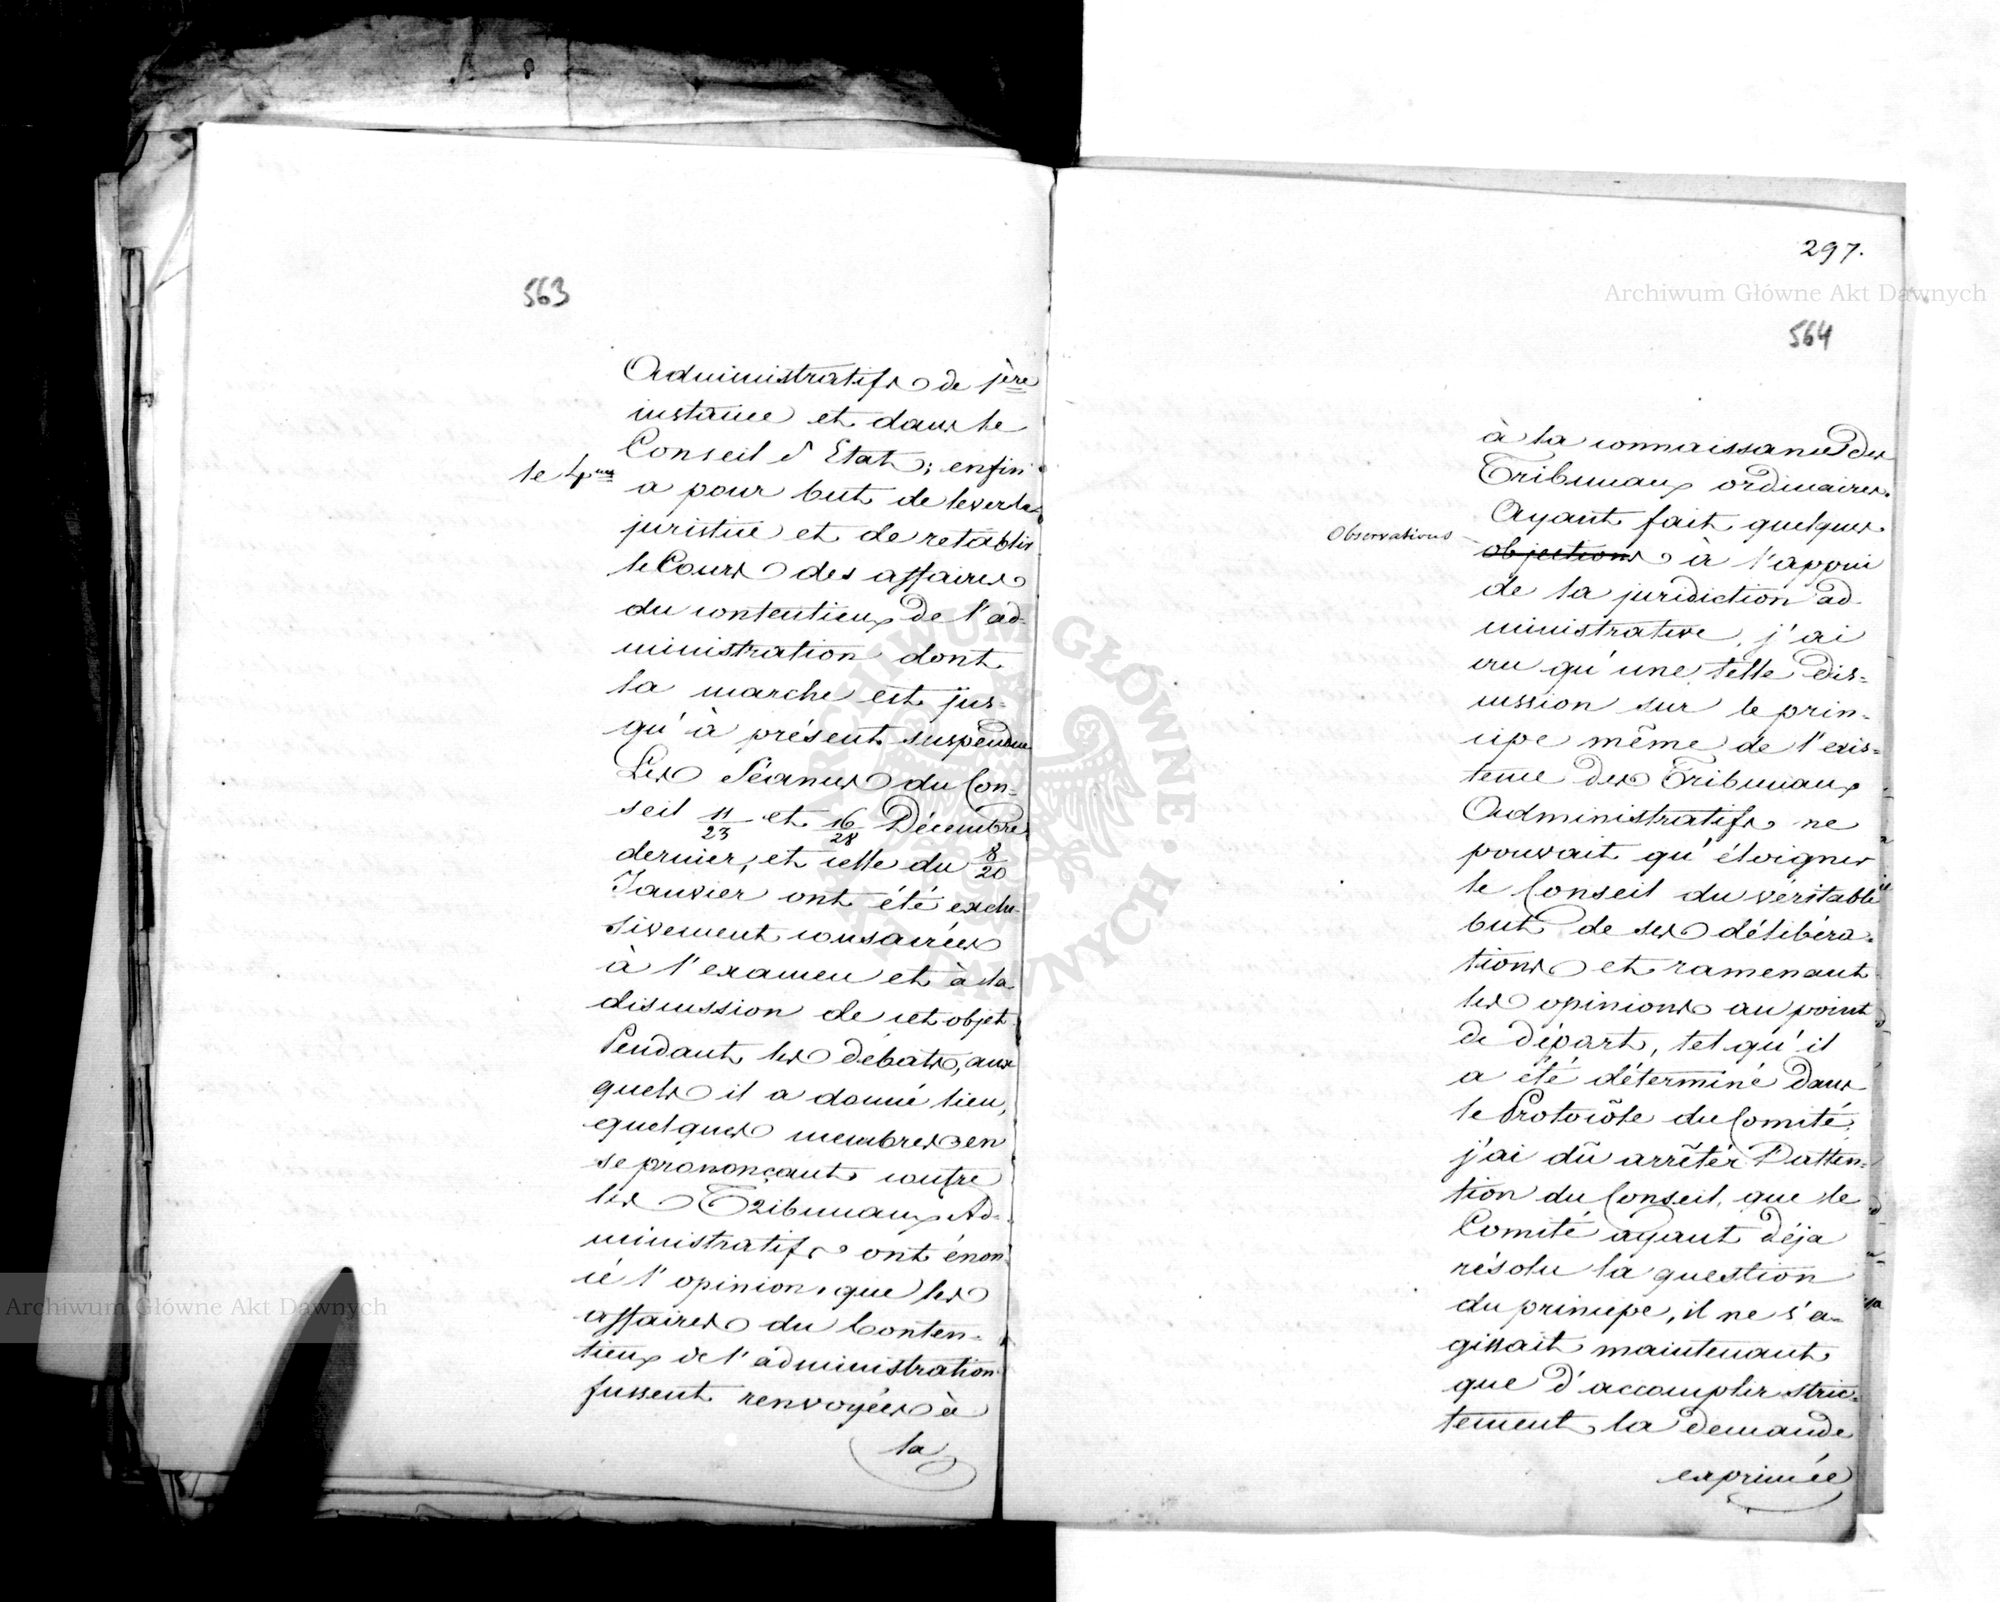 563
Administratifs de 1ère
instance et dans le
Conseil d'Etat; enfin
le 4me
a pour but de lever la
juristice et de rétablir
le Cours des affaires
du contentieux de l'ad-
ministration dont
la marche est jus-
qu'à présent suspendue
Les Séances du Con-
seil 11/23 et 16/28 Décembre
dernier, et celle du 8/20
Janvier ont été exclu-
sivement consacrées
à l'examen et à la
discussion de cet objet.
Pendant les débats, aux
quels il a donné lieu,
quelques membres en
se prononçant contre
les Tribunaux Ad-
ministratifs ont énon-
cé l'opinion, que les
affaires du Conten-
tieux de l'administration
fussent renvoyées à
la
297.
564
à la connaissance des
Tribunaux ordinaires.
Ayant fait quelques
Observations
objections à l'appui
de la juridiction ad-
ministrative, j'ai
cru qu'une telle dis-
cussion sur le prin-
cipe même de l'exis-
tence des Tribunaux
Administratifs ne
pouvait qu'éloigner
le Conseil du véritable
but de ses délibéra-
tions et ramenant
les opinions au point
de départ, tel qu'il
a été déterminé dans
le Protocôle du Comité,
j'ai dû arrêter l'atten-
tion du Conseil, que le
Comité ayant déja
résolu la question
du principe, il ne s'a-
gissait maintenant
que d'accomplir stric-
tement la demande
exprimée
Archiwum Główne Akt Dawnych
Archiwum Główne Akt Dawnych
ARCHIWUM GŁÓWNE AKT DAWNYCH